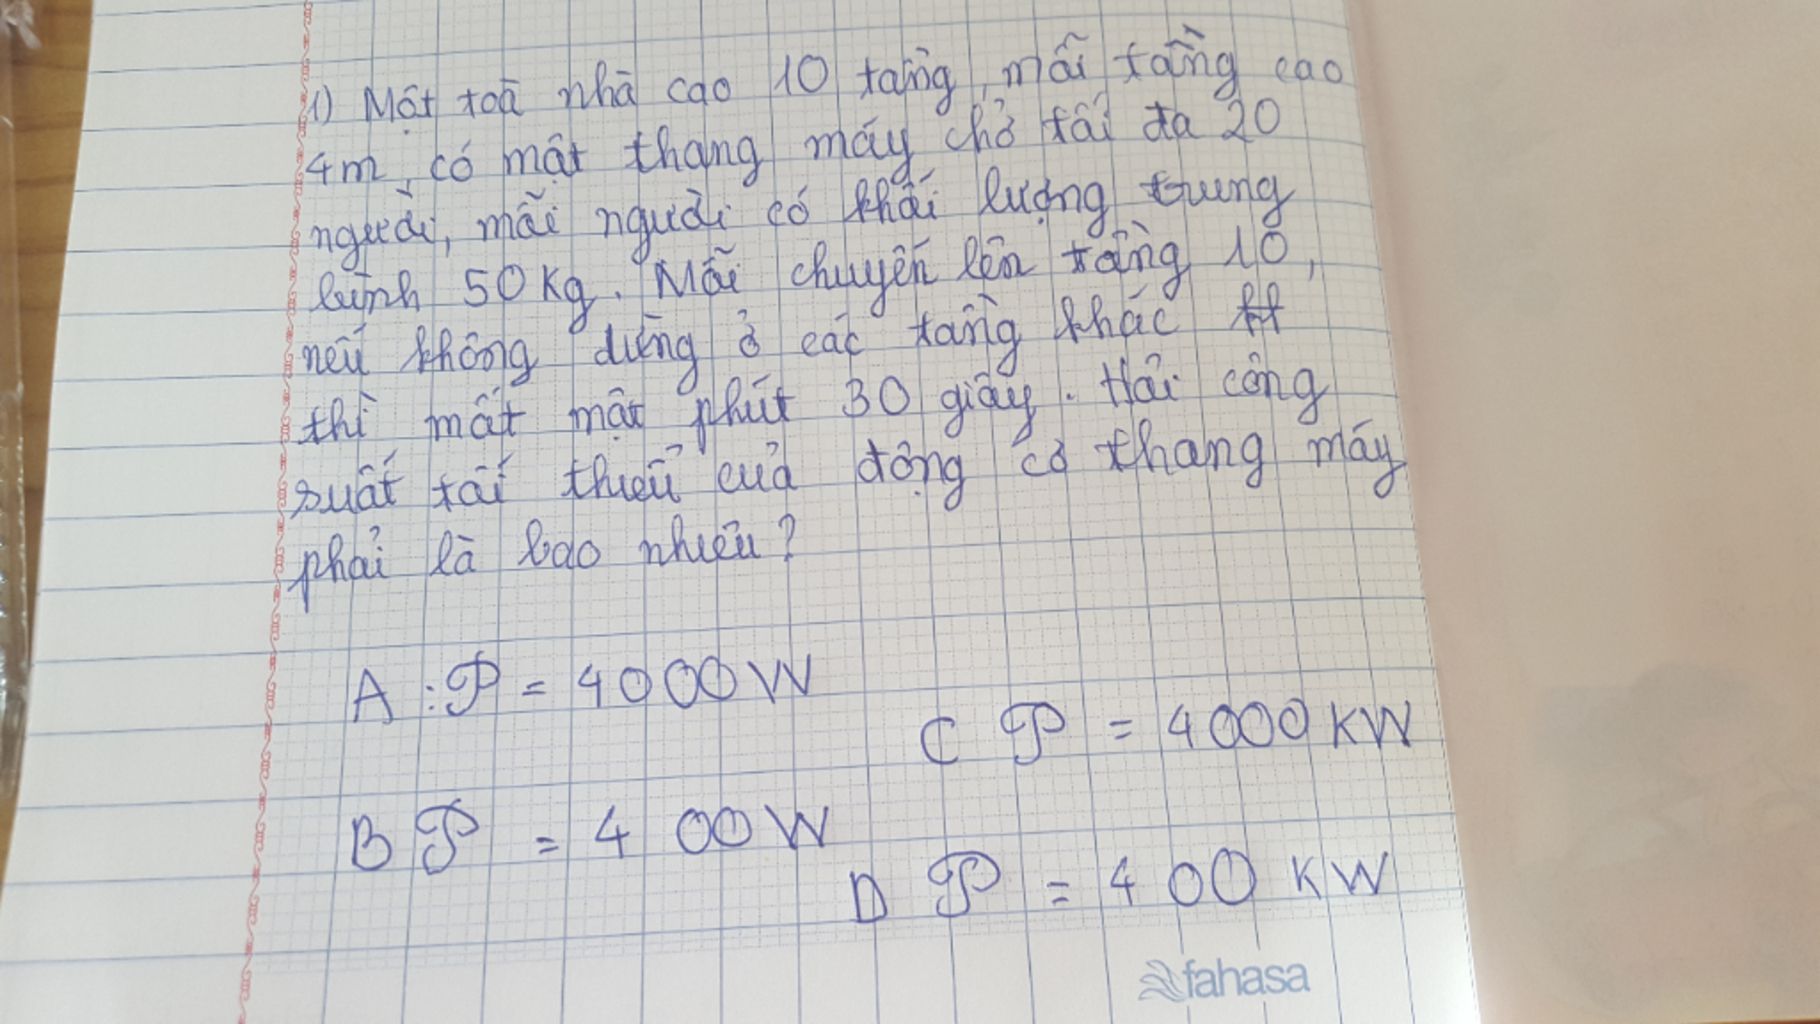 1) Một toà nhà cao 10 tầng, mỗi tầng cao
4m, có một thang máy chở tối đa 20
người, mỗi người có khối lượng trung
bình 50 Kg. Mỗi chuyến lên tầng 10,
nếu không dừng ở các tầng khác
thì mất một phút 30 giây. Hỏi công
suất tối thiểu của động cơ thang máy
phải là bao nhiêu?
A : P = 4000 W
C P = 4000 KW
B P = 400 W
D P = 400 KW
fahasa